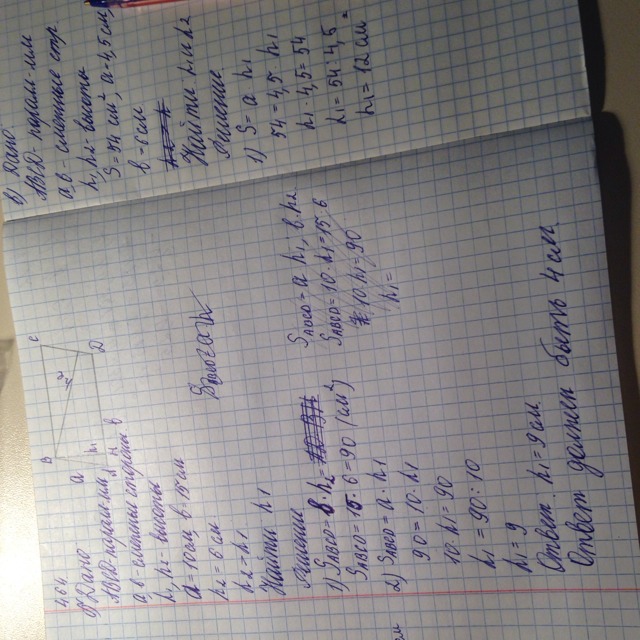 464
а) Дано
ABCD-паралл-м
a, b-смежные стороны
h1, h2-высоты
a=10см, b=15см
h2=6см
h2=h1
Найти h1
Решение
1) SABCD=
SABCD=15·6=90 (см²)
2) SABCD=a·h1
90=10·h1
10·h1=90
h1=90:10
h1=9
Ответ: h1=9см
Ответ должен быть 4 см
SABCD=a·h1, b·h2
SABCD=10·h1=15·6
10·h1=90
h1=
B
C
D
a
h1
h2
в) Дано
ABCD-паралл-мм
a, b-смежные стр.
h1, h2-высоты
S=54 см², a=4,5см,
b=6см
Найти h1 и h2
Решение
1) S=a·h1
54=4,5·h1
h1·4,5=54
h1=54:4,5=
h1=12см